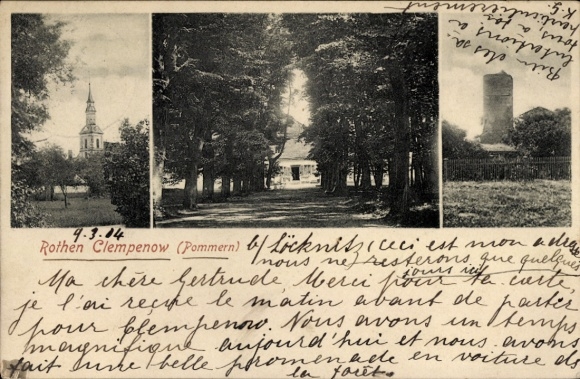 Bien des sa
lutations à
tous à
K. G.
9.3.04
Rothen Clempenow (Pommern) b/ Löcknitz (ceci est mon
nous ne resterons que quelques
jours ici
Ma chère Gertrude. Merci pour ta carte,
je l'ai reçue le matin avant de partir
pour Clempenow. Nous avons un temps
magnifique aujourd'hui et nous avons
fait une belle promenade en voiture ds
la forêt.